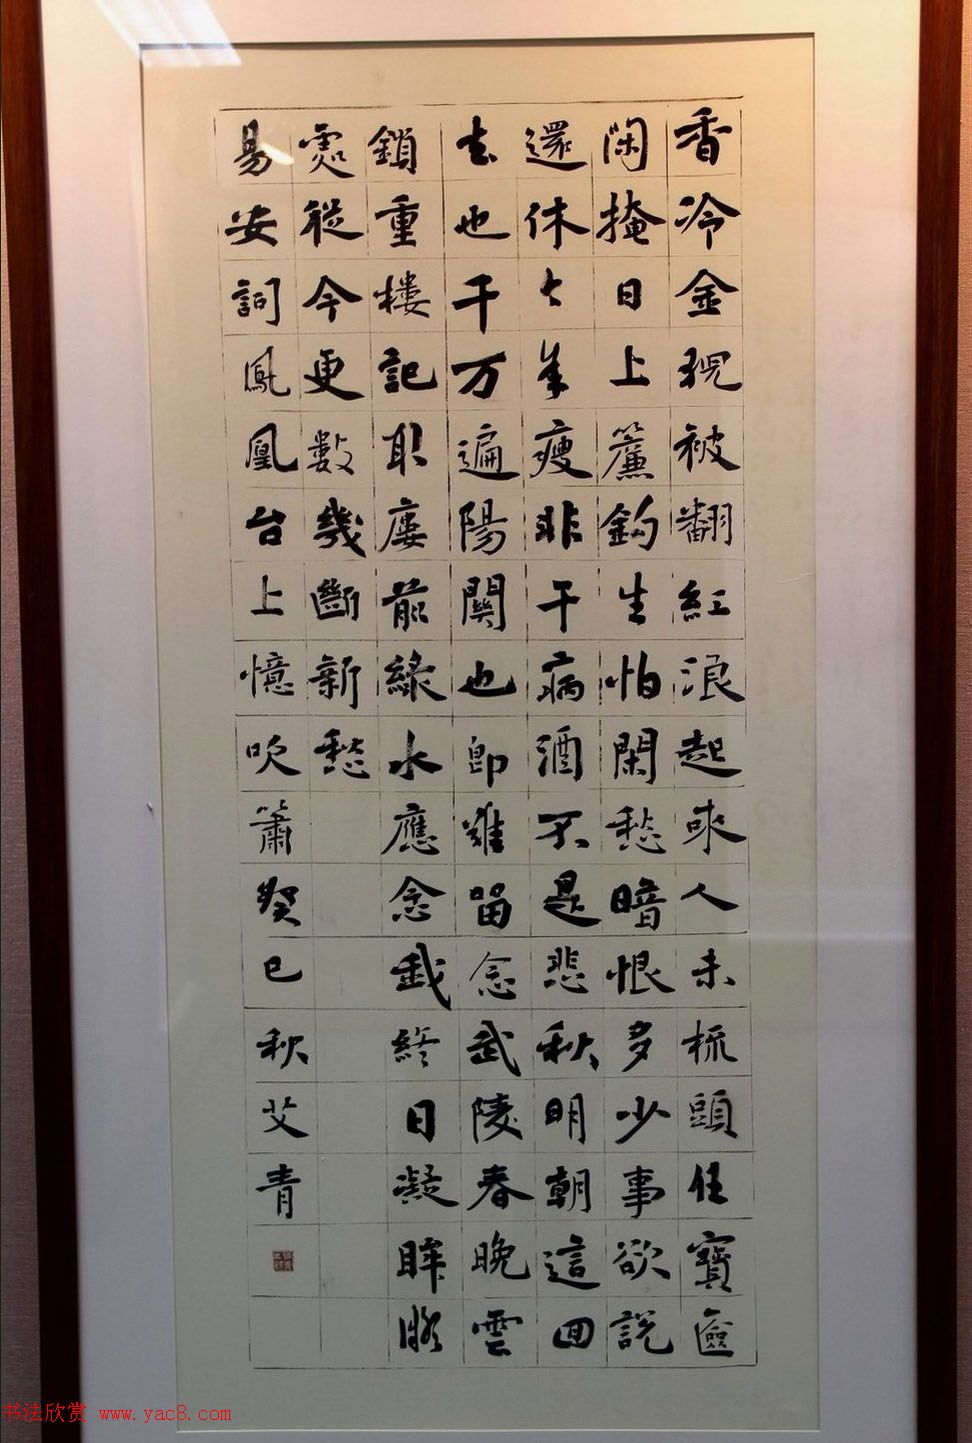 香冷金猊被翻紅浪起來人未梳頭任寶奩
閑掩日上簾鈎生怕閑愁暗恨多少事欲說
還休今年瘦非干病酒不是悲秋明朝這回
去也千万遍陽關也即難留念武陵春晚雲
鎖重樓記取廔前綠水應念我終日凝眸
處從今更數幾斷新愁
易安詞鳳凰台上憶吹簫癸巳秋艾青
书法欣赏 www.yac8.com